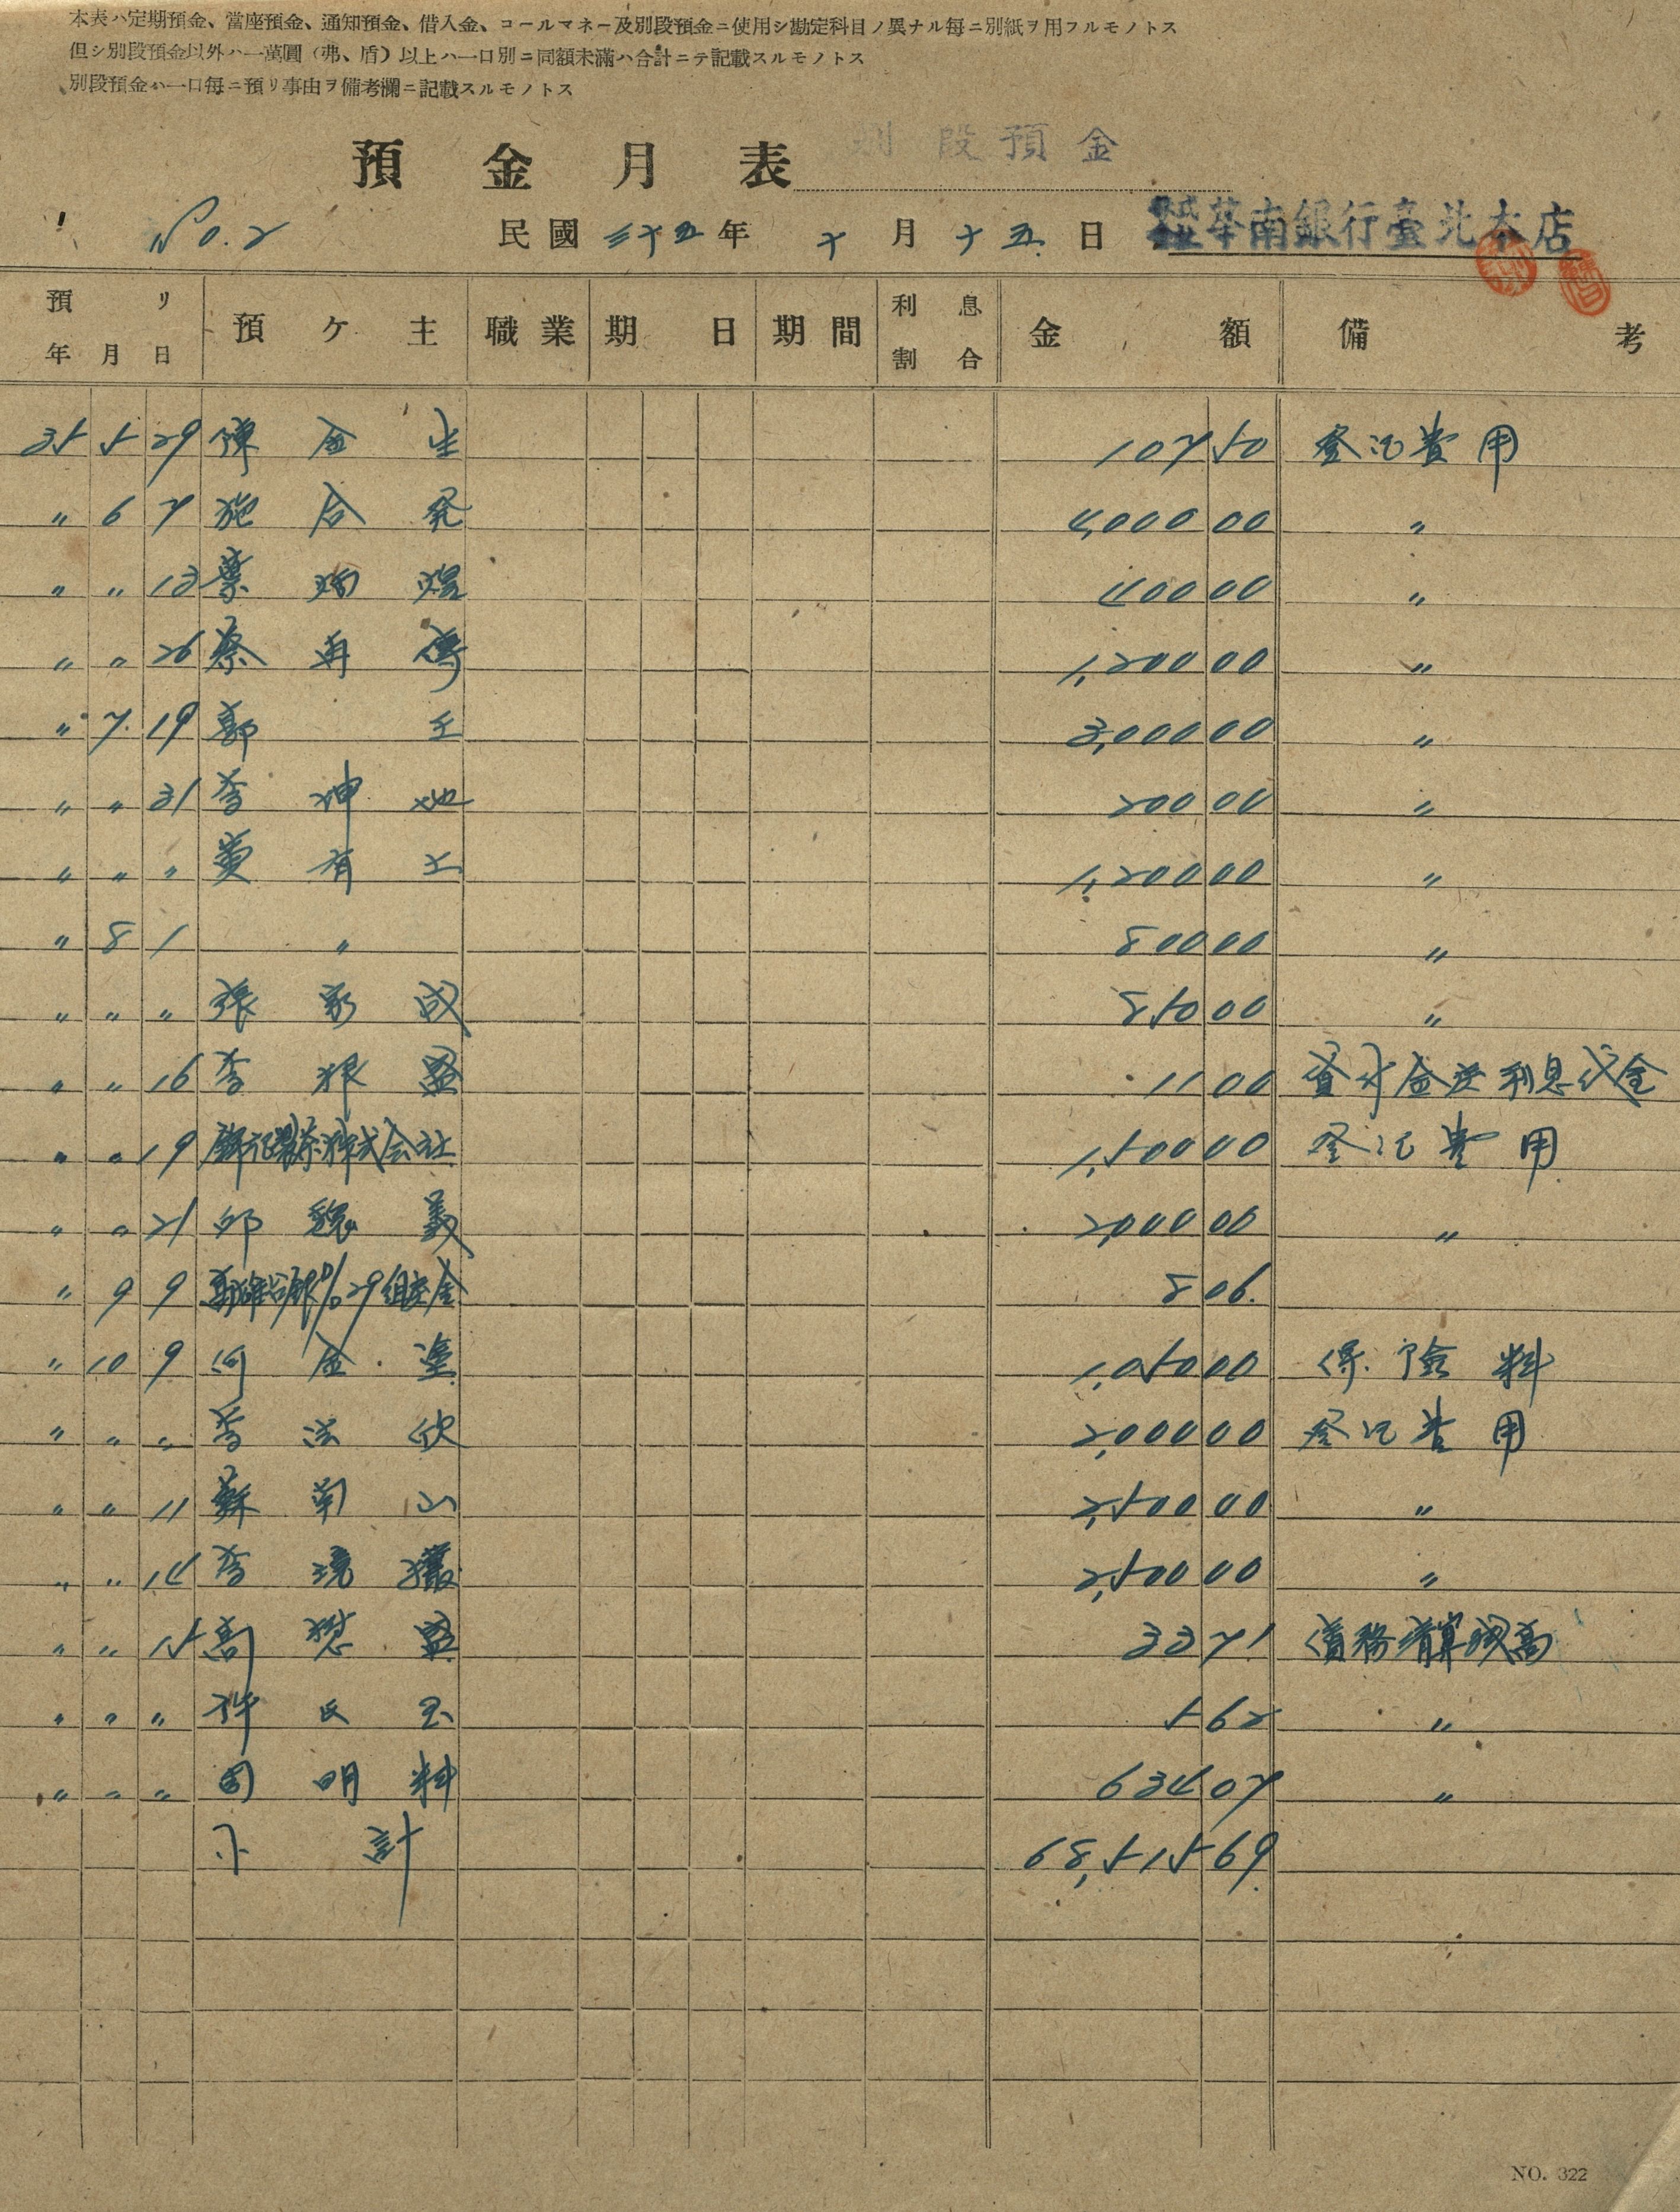 本表ハ定期預金、當座預金、通知預金、借入金、コールマネー及別段預金ニ使用シ勘定科目ノ異ナル每ニ別紙ヲ用フルモノトス
但シ別段預金以外ハ一萬圓（弗、盾）以上ハ一口別ニ同額未滿ハ合計ニテ記載スルモノトス
別段預金ハ一口每ニ預リ事由ヲ備考欄ニ記載スルモノトス
預金月表 別段預金
No.2 民國三十五年十月十五日 華南銀行臺北本店
預リ年月日 預ケ主 職業 期日 期間 利息割合 金額 備考
35 5 29 陳金生 107 50 登記費用
〃 6 7 施合発 4,000 00 〃
〃 〃 13 葉炳煌 400 00 〃
〃 〃 26 蔡再 1,200 00 〃
〃 7 19 郭壬 3,000 00 〃
〃 〃 31 李坤地 200 00 〃
〃 〃 〃 黄有土 1,200 00 〃
〃 8 1 〃 800 00 〃
〃 〃 〃 張家成 850 00 〃
〃 〃 16 李根盛 11 00 利息代金
〃 〃 19 製茶株式会社 1,500 00 登記費用
〃 〃 21 邱魏義 2,000 00 〃
〃 9 9 8 06
〃 10 9 何金塗 1,050 00 保険料
〃 〃 〃 李法欣 2,000 00 登記费用
〃 〃 11 蘇南山 2,500 00 〃
〃 〃 14 李 2,500 00 〃
〃 〃 15 高懋盛 33 71 債務清算残高
〃 〃 〃 許氏玉 5 62 〃
〃 〃 〃 周明料 634 07 〃
小計 68,515 69
NO. 322